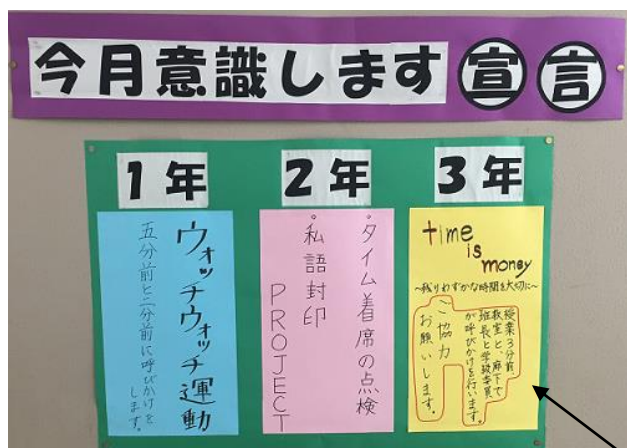 今月意識します宣言
1年
ウォッチウォッチ運動
五分前と二分前に呼びかけを
します。
2年
・タイム着席の点検
・私語封印
PROJECT
3年
time
is
money
〜残りわずかな時間を大切に〜
授業3分前、
教室と、廊下で
班長と学級委員
が呼びかけを行います。
ご協力
お願いします。